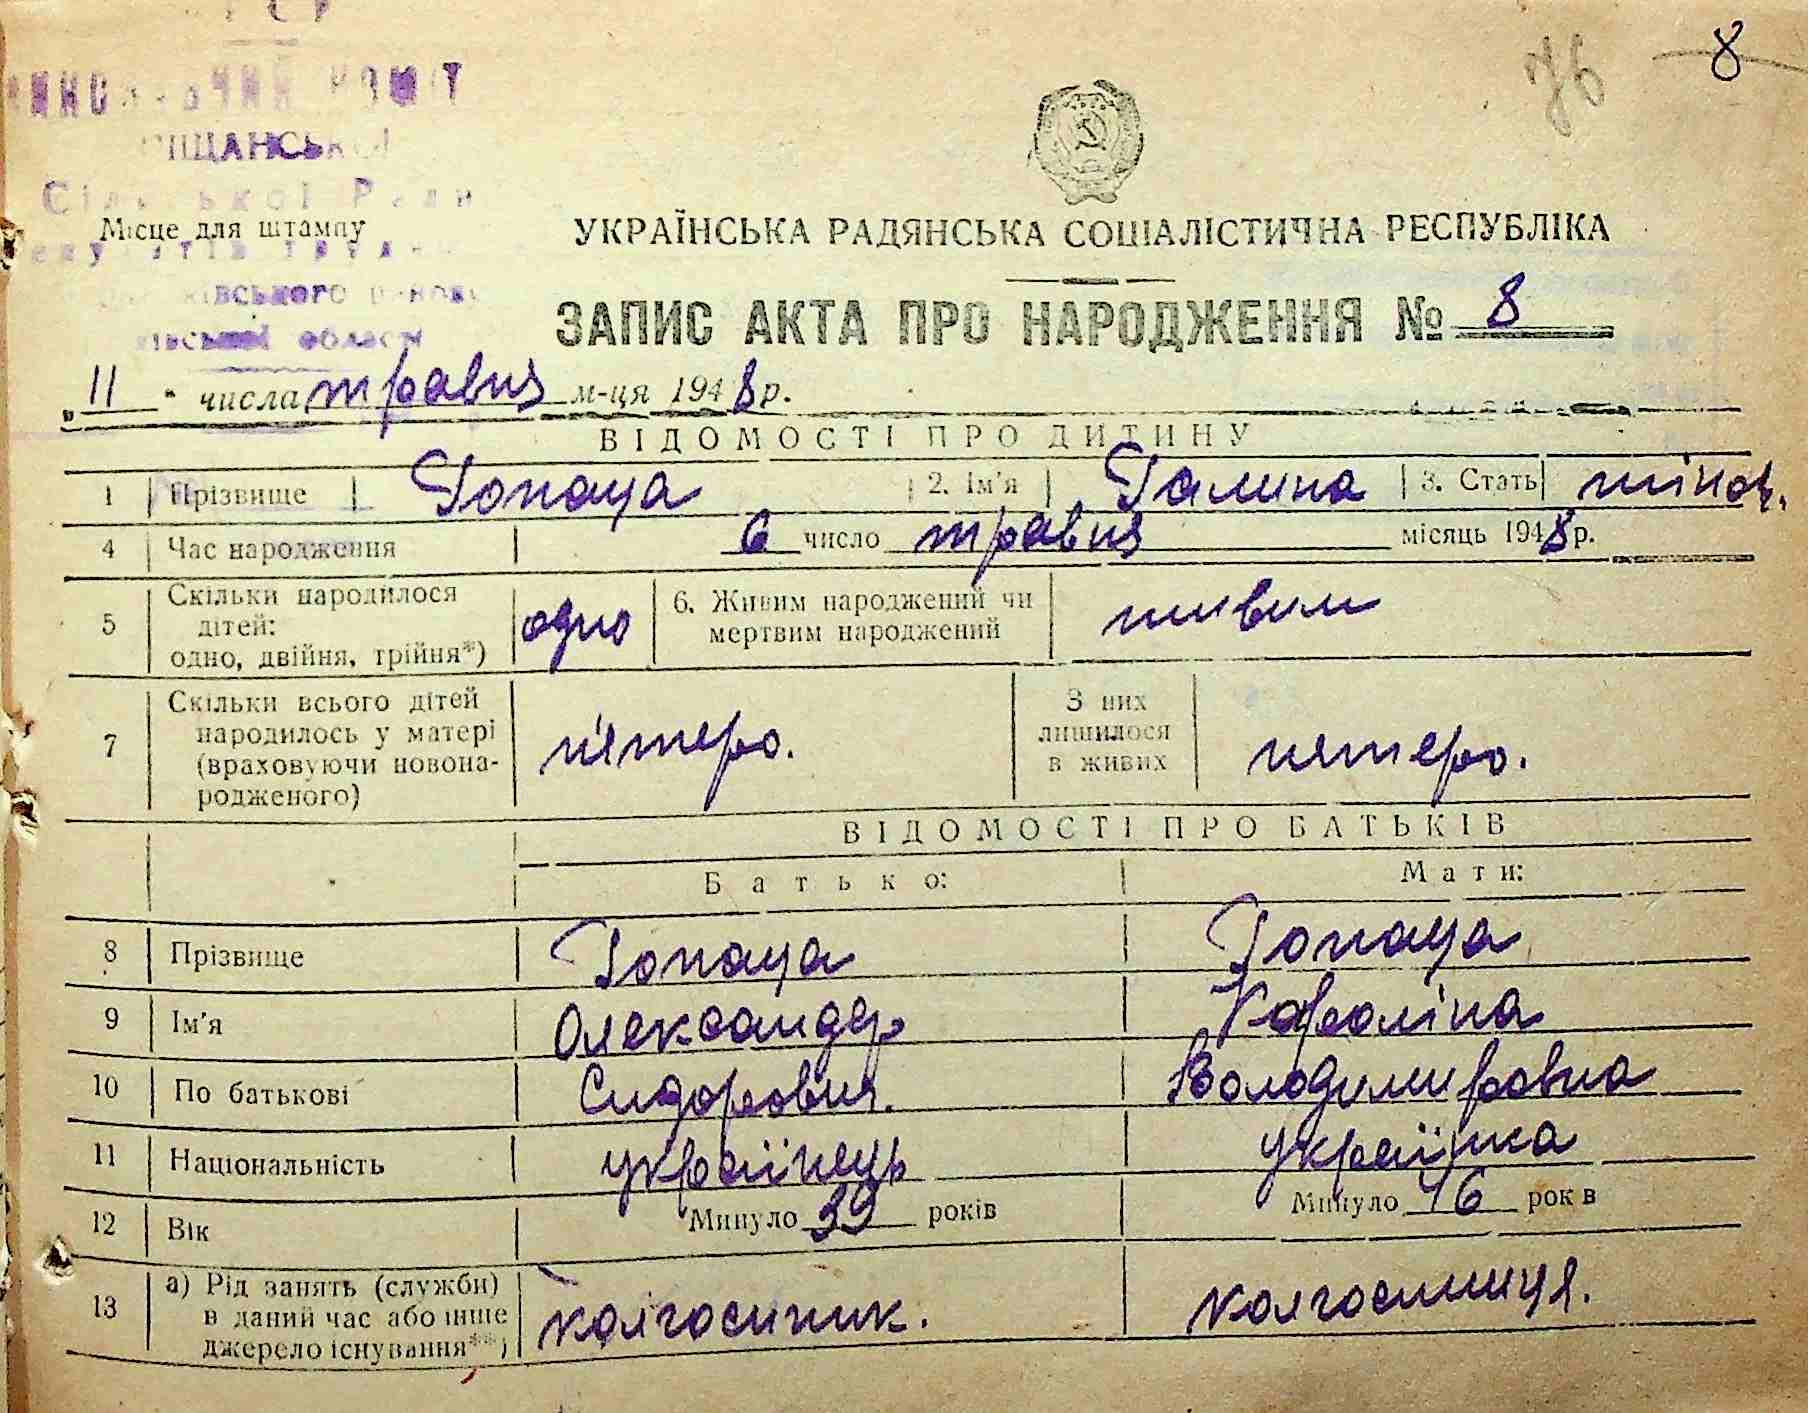 76 8
ПІЩАНСЬКОЇ
Сільської Ради
Місце для штампу
УКРАЇНСЬКА РАДЯНСЬКА СОЦІАЛІСТИЧНА РЕСПУБЛІКА
області
ЗАПИС АКТА ПРО НАРОДЖЕННЯ № 8
„11“ числа травня м-ця 1948 р.
ВІДОМОСТІ ПРО ДИТИНУ
1 Прізвище Гопаца 2. Ім'я Галина 3. Стать жіноч.
4 Час народження 6 число травня місяць 1948 р.
5 Скільки народилося дітей: одно, двійня, трійня*) одно 6. Живим народжений чи мертвим народжений живим
7 Скільки всього дітей народилось у матері (враховуючи новонародженого) п'ятеро. З них лишилося в живих пятеро.
ВІДОМОСТІ ПРО БАТЬКІВ
Батько: Мати:
8 Прізвище Гопаца Гопаца
9 Ім'я Олександер Кароліна
10 По батькові Сидорович. Володимировна
11 Національність українець українка
12 Вік Минуло 39 років Минуло 46 рок в
13 а) Рід занять (служби) в даний час або інше джерело існування**) колгоспник. колгоспниця.